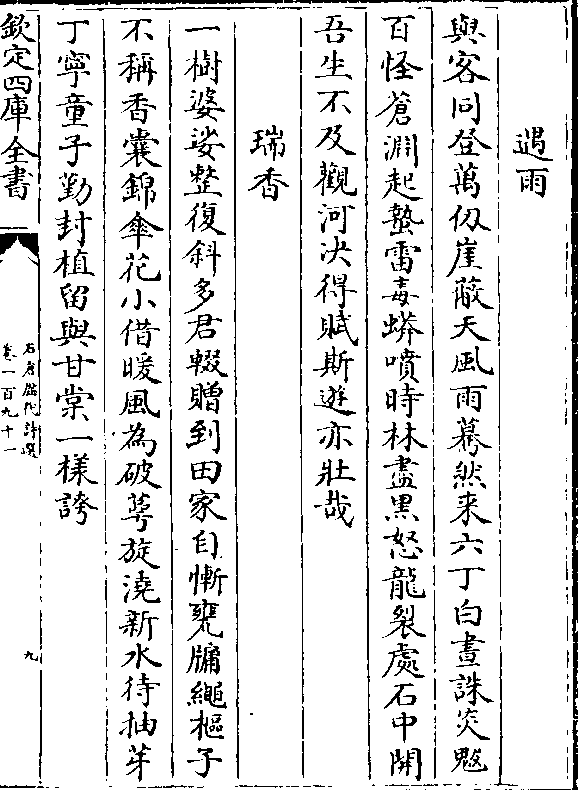 遇雨
與客同登萬仭崖蔽天風雨驀然来六丁白晝誅災魃
百怪蒼淵起蟄雷毒蟒噴時林盡黒怒龍裂處石中開
吾生不及觀河决得賦斯遊亦壯哉
瑞香
一樹婆娑整復斜多君輟贈到田家自慚甕牖繩樞子
不稱香囊錦傘花小借暖風為破萼旋澆新水待抽芽
丁寧童子勤封植留與甘棠一樣誇
欽定四庫全書
石倉歴代詩選
卷一百九十一
九